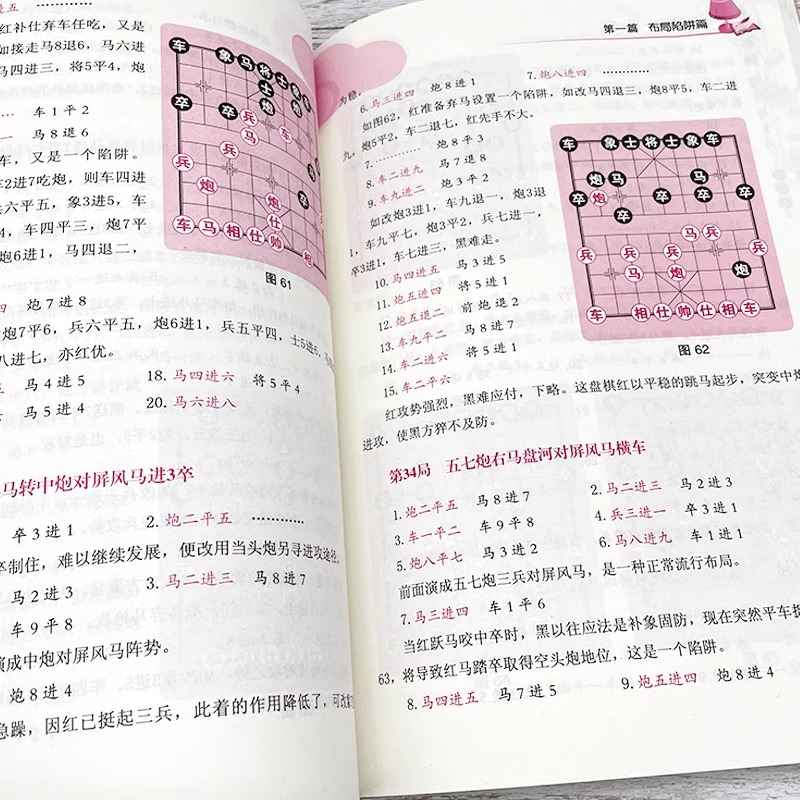 进五 …………
红补仕弃车任吃，又是
如接走马8退6，马六进
马四进三，将5平4，炮
…… 车1平2
马8退6
车，又是一个陷阱。
车2进7吃炮，则车四进
六平五，象3进5，车
4，车四平三，炮7平
6进1，马四退二，
图 61
四 炮7进8
炮7平6，兵六平五，炮6进1，兵五平四，士5进6，
八进七，亦红优。
马4进5 18.马四进六 将5平4
马5进4 20.马六进八
马转中炮对屏风马进3卒
卒3进1 2.炮二平五 …………
卒制住，难以继续发展，便改用当头炮另寻进攻途径。
马2进3 3.马二进三 马8进7
车9平8
演成中炮对屏风马阵势。
炮8进4
急躁，因红已挺起三兵，此着的作用降低了，可改
第一篇 布局陷阱篇
为稳。
6.马三进四 炮8进1 7.炮八进四 …………
如图62，红准备弃马设置一个陷阱，如改马四退三，炮8平5，车二进
九，炮5平2，车二退七，红先手不大。
7.………… 炮8平3
8.车二进九 马7退8
9.车九进二 炮3平2
如改炮3进1，车九退一，炮3退
1，车九平七，炮3平2，兵七进一，
卒3进1，车七进三，黑难走。
10.马四进五 马3进5
11.炮五进四 将5进1
12.炮五退二 前炮退2
13.车九平二 马8进7
14.车二进六 将5进1
15.车二平六
图 62
红攻势强烈，黑难应付，下略。这盘棋红以平稳的跳马起步，突变中炮
进攻，使黑方猝不及防。
第34局 五七炮右马盘河对屏风马横车
1.炮二平五 马8进7 2.马二进三 马2进3
3.车一平二 车9平8 4.兵三进一 卒3进1
5.炮八平七 马3进2 6.马八进九 车1进1
前面演成五七炮三兵对屏风马，是一种正常流行布局。
7.马三进四 车1平6
当红跃马咬中卒时，黑以往应法是补象固防，现在突然平车
63，将导致红马踏卒取得空头炮地位，这是一个陷阱。
8.马四进五 马7进5 9.炮五进四 炮8进4